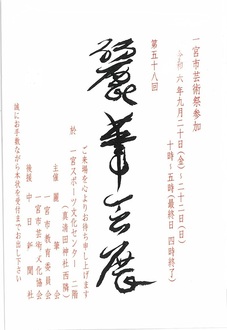 一宮市芸術祭参加
令和六年九月二十日(金)~二十二日(日)
十時~五時(最終日 四時終了)
第五十八回
麗筆会展
ご来場を心よりお待ち申し上げます
於 一宮スポーツ文化センター 二階
(真清田神社西隣)
主催 麗筆会
後援 一宮市教育委員会
一宮市芸術文化協会
中日新聞社
誠にお手数ながら本状を受付までお出し下さい